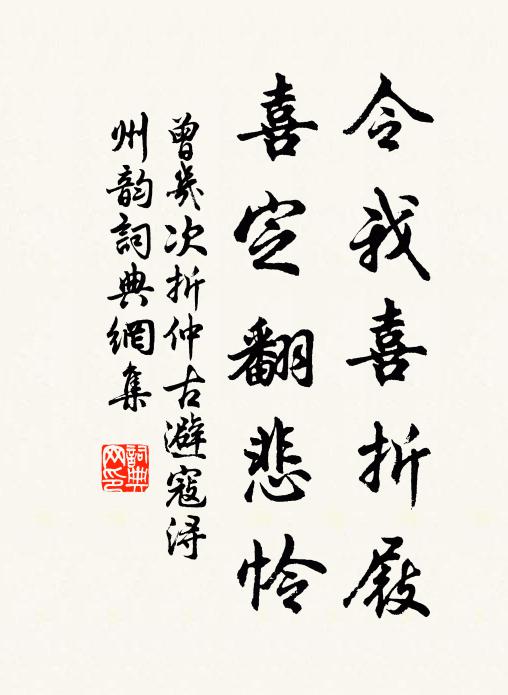 令我喜折屐
喜定翻悲怜
曾几次折仲古避寇浔
州韵词典網集
詞典網印